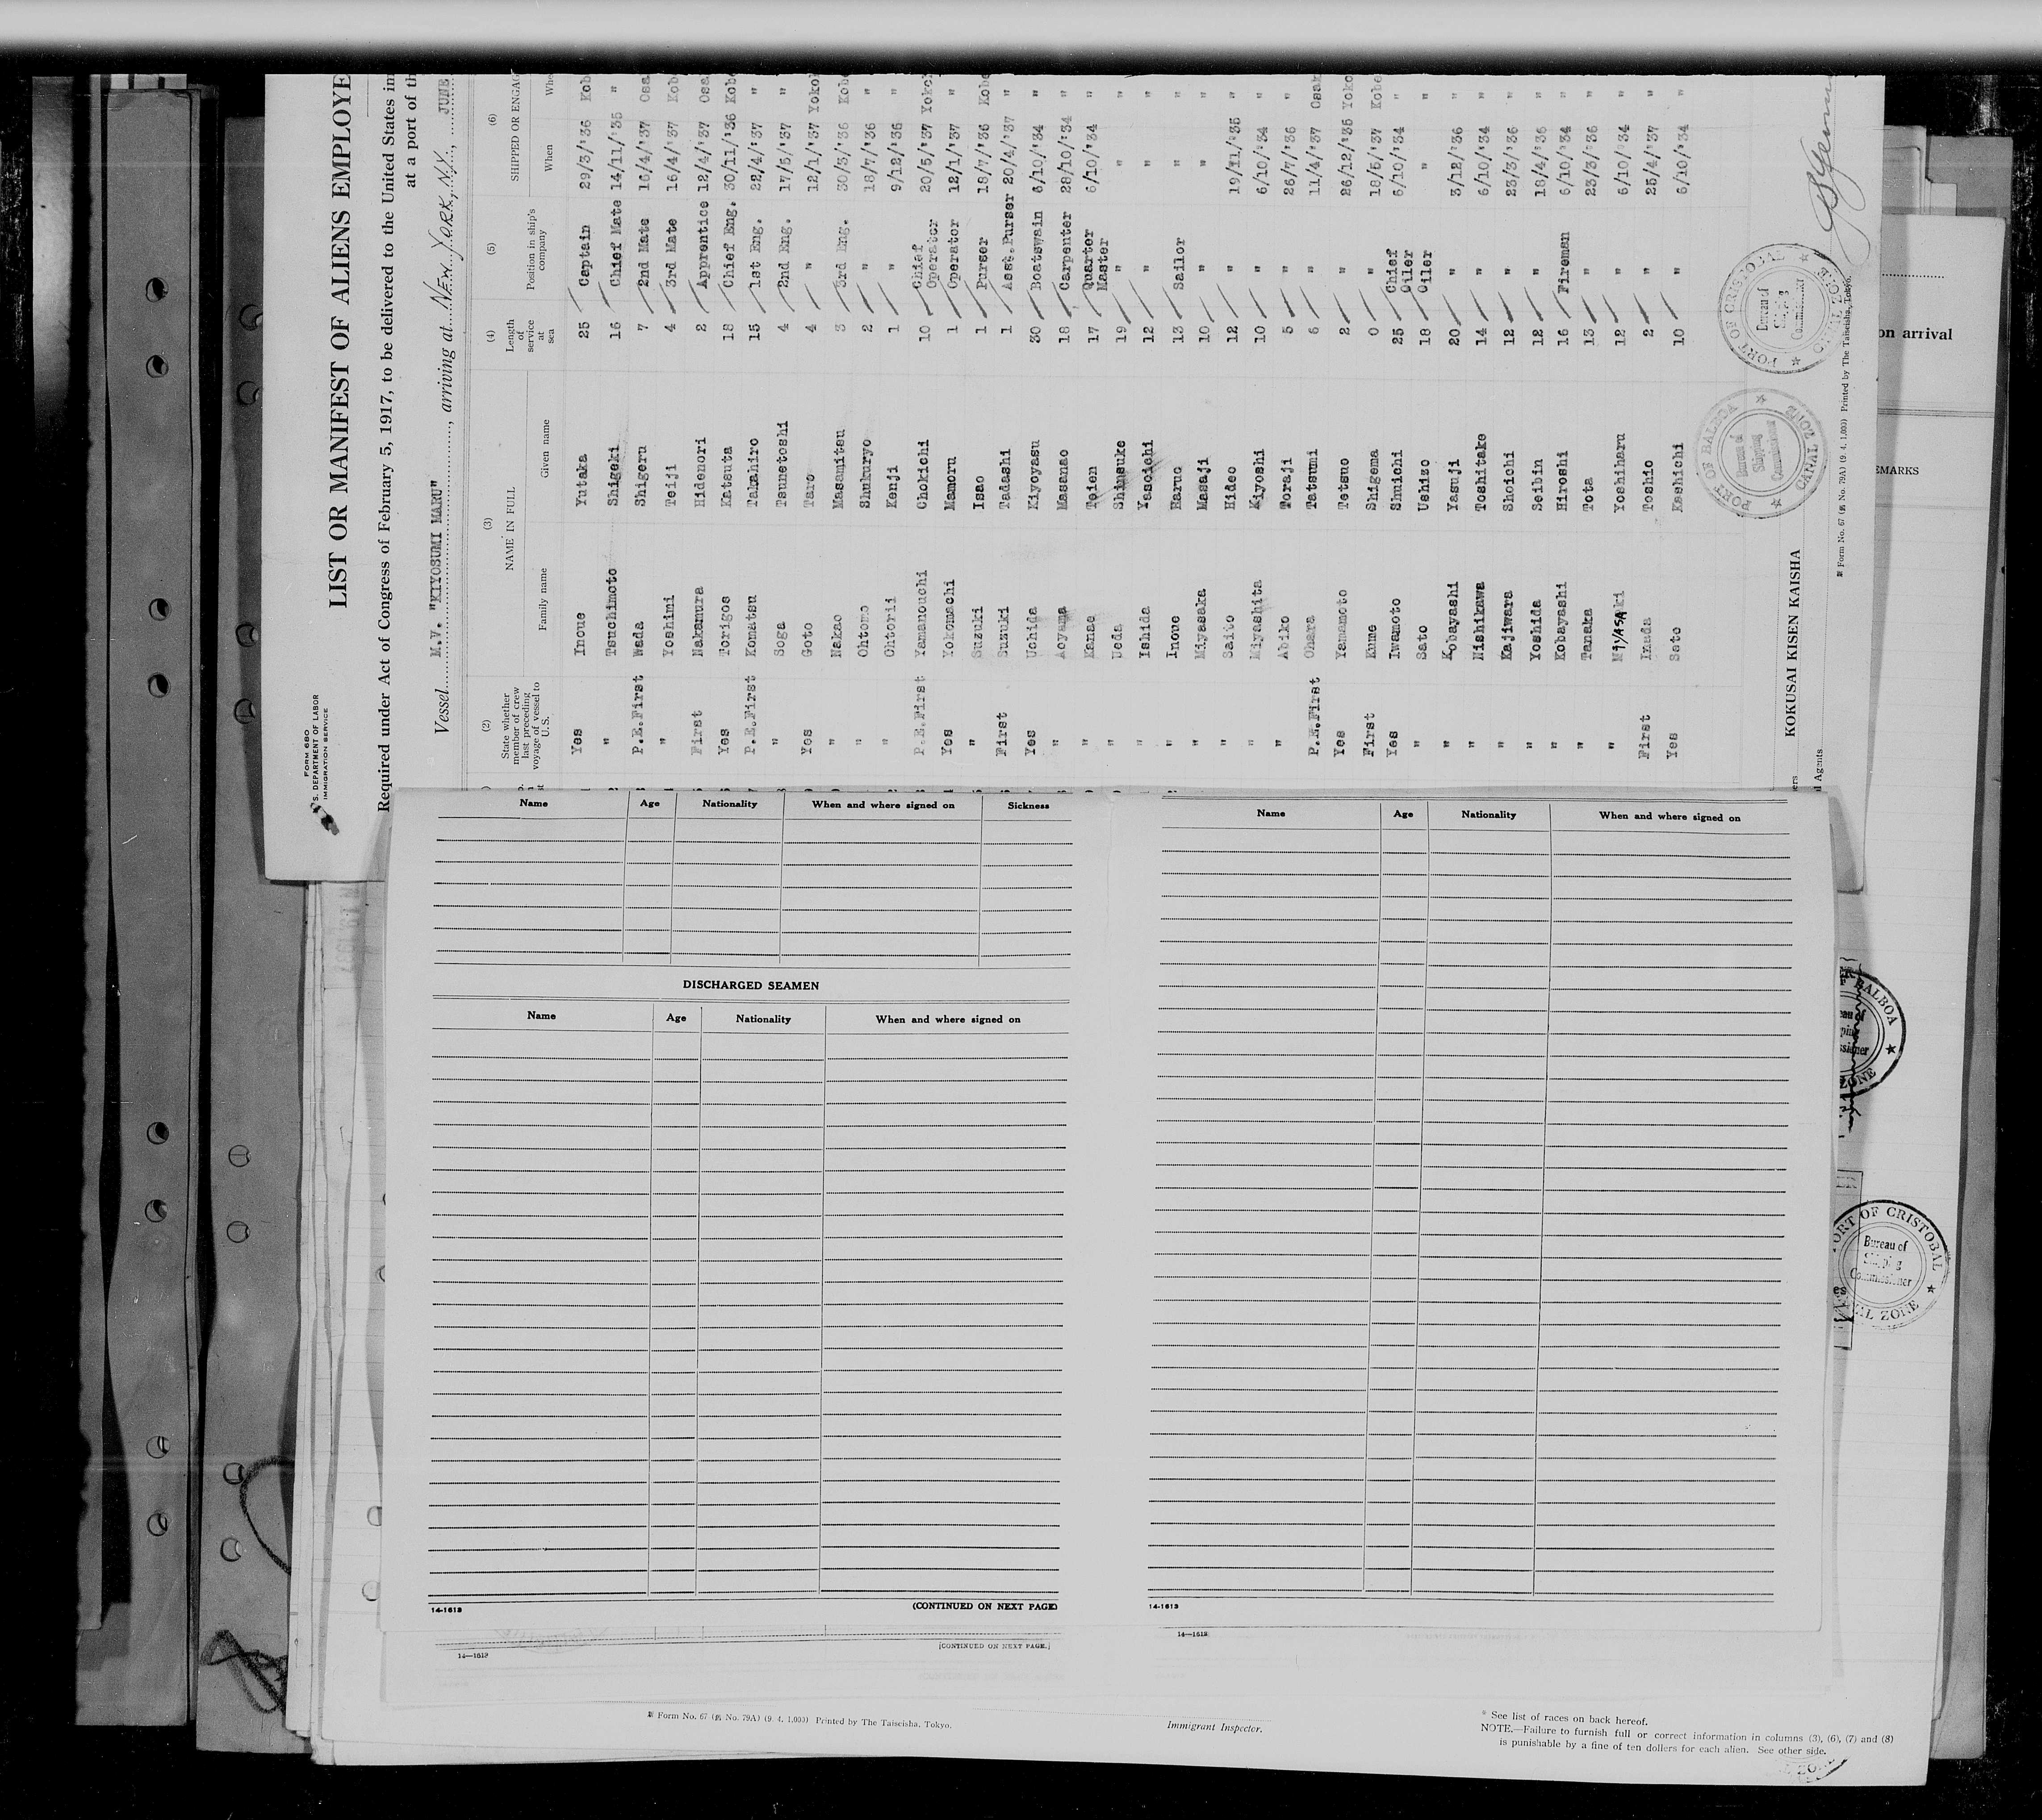 FORM 680
S. DEPARTMENT OF LABOR
IMMIGRATION SERVICE
LIST OR MANIFEST OF ALIENS EMPLOYE
Required under Act of Congress of February 5, 1917, to be delivered to the United States im
at a port of th
Vessel M.V. "KIYOSUMI MARU", arriving at NEW YORK, N.Y., JUNE
(2) (3) (4) (5) (6)
State whether member of crew last preceding voyage of vessel to U.S.
NAME IN FULL
Family name Given name
Length of service at sea
Position in ship's company
SHIPPED OR ENGAG
When Whe
Yes Inoue Yutaka 25 Captain 29/3/'36 Kob
" Tsuchimoto Shigeki 16 Chief Mate 14/11/'35 "
P.E.First Wada Shigeru 7 2nd Mate 16/4/'37 Osa
" Yoshimi Teiji 4 3rd Mate 16/4/'37 Kob
First Nakamura Hidenori 2 Apprentice 12/4/'37 Osa
Yes Torigos Katsuta 18 Chief Eng. 30/11/'36 Kobe
P.E.First Komatsu Takahiro 15 1st Eng. 22/4/'37 "
" Soga Tsunetoshi 4 2nd Eng. 17/5/'37 "
Yes Goto Taro 4 " 12/1/'37 Yoko
" Nakao Masamitsu 3 3rd Eng. 30/3/'36 Kobe
" Ohtomo Shukuryo 2 " 18/7/'36 "
" Ohtorii Kenji 1 " 9/12/'36 "
P.E.First Yamanouchi Chokichi 10 Chief Operator 20/5/'37 Yokoh
Yes Yokomachi Mamoru 1 Operator 12/1/'37 "
" Suzuki Isao 1 Purser 18/7/'36 Kobe
First Suzuki Tadashi 1 Asst.Purser 20/4/'37 "
Yes Uchida Kiyoyasu 30 Boatswain 6/10/'34 "
" Aoyama Masanao 18 Carpenter 28/10/'34 "
" Kanae Teien 17 Quarter Master 6/10/'34 "
" Ueda Shinsuke 19 " " "
" Ishida Yasoichi 12 " " "
" Inoue Haruo 13 Sailor " "
" Miyasaka Masaji 10 " " "
" Saito Hideo 12 " 19/11/'35 "
" Miyashita Kiyoshi 10 " 6/10/'34 "
" Abiko Toraji 5 " 26/7/'36 "
P.E.First Ohara Tatsumi 6 " 11/4/'37 Osak
Yes Yamamoto Tetsuo 2 " 26/12/'35 Yoko
First Kume Shigema 0 " 18/5/'37 Kobe
Yes Iwamoto Shuichi 25 Chief Oiler 6/10/'34 "
" Sato Ushizo 18 Oiler " "
" Kobayashi Yasuji 20 " 3/12/'36 "
" Nishikawa Toshitake 14 " 6/10/'34 "
" Kajiwara Shoichi 12 " 23/3/'36 "
" Yoshida Seibin 12 " 18/4/'36 "
" Kobayashi Hiroshi 16 Fireman 6/10/'34 "
" Tanaka Tota 13 " 23/3/'36 "
" Miyasaki Yoshiharu 12 " 6/10/'34 "
First Inada Toshio 2 " 25/4/'37 "
Yes Sato Kashichi 10 " 6/10/'34 "
KOKUSAI KISEN KAISHA
Agents
Form No. 67 (舊 No. 79A) (9. 4. 1,000) Printed by The Taiseisha, Tokyo.
PORT OF BALBOA
Bureau of
Shipping
Commissioner
CANAL ZONE
PORT OF CRISTOBAL
Bureau of
Shipping
Commissioner
CANAL ZONE
on arrival
EMARKS
Name Age Nationality When and where signed on Sickness
DISCHARGED SEAMEN
Name Age Nationality When and where signed on
14-1613
(CONTINUED ON NEXT PAGE)
Name Age Nationality When and where signed on
14-1613
[CONTINUED ON NEXT PAGE.]
14—1613
14—1613
BALBOA
ZONE
PORT OF CRISTOBAL
Bureau of
Shipping
Commissioner
ZONE
Form No. 67 (舊 No. 79A) (9. 4. 1,000) Printed by The Taiseisha, Tokyo.
Immigrant Inspector.
* See list of races on back hereof.
NOTE.—Failure to furnish full or correct information in columns (3), (6), (7) and (8)
is punishable by a fine of ten dollars for each alien. See other side.